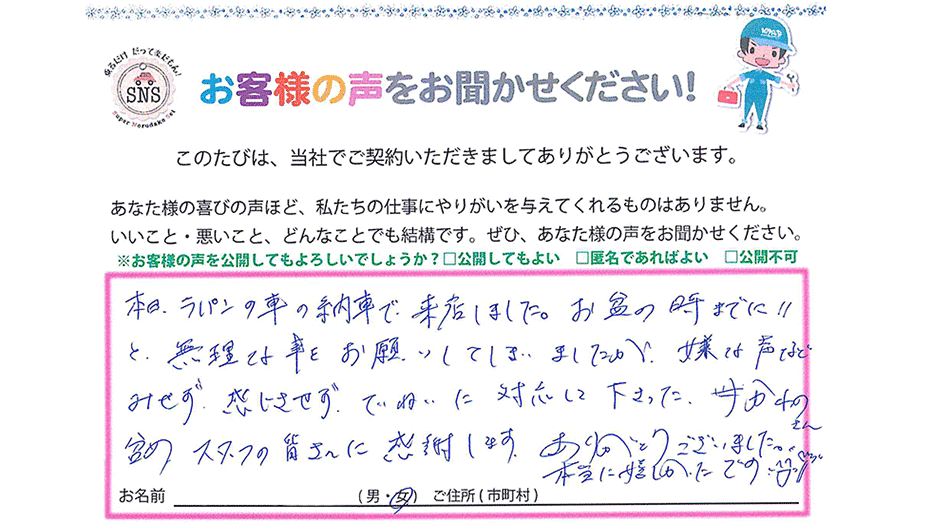 乗るだけ だって楽だもん!
SNS
Super Norudake Set
お客様の声をお聞かせください!
このたびは、当社でご契約いただきましてありがとうございます。
あなた様の喜びの声ほど、私たちの仕事にやりがいを与えてくれるものはありません。
いいこと・悪いこと、どんなことでも結構です。ぜひ、あなた様の声をお聞かせください。
※お客様の声を公開してもよろしいでしょうか?□公開してもよい □匿名であればよい □公開不可
本日、ラパンの車の納車で、来店しました。お盆の時までに!!
と、無理な事をお願いしてしまいましたが、嫌な声など
みせず、感じさせず、ていねいに対応して下さった、
さん
含め、スタッフの皆さんに感謝します。ありがとうございました。
本当に嬉しかったです
お名前 (男・女) ご住所(市町村)